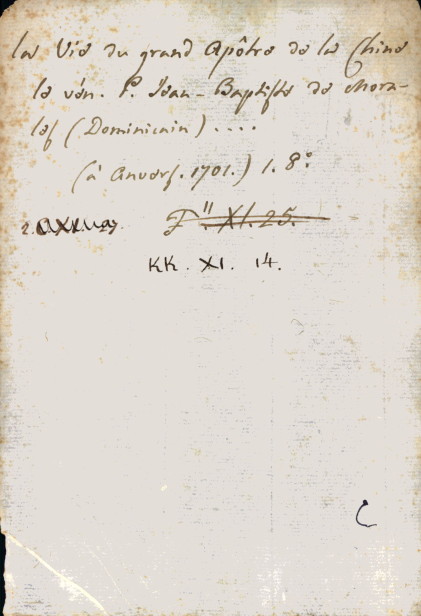 La Vie du grand Apôtre de la Chine
le vén. P. Jean-Baptiste de Mora-
les (Dominicain) ....
(à Anvers. 1701.) 1. 8°
2. F" XI. 25.
KK. XI. 14.
C